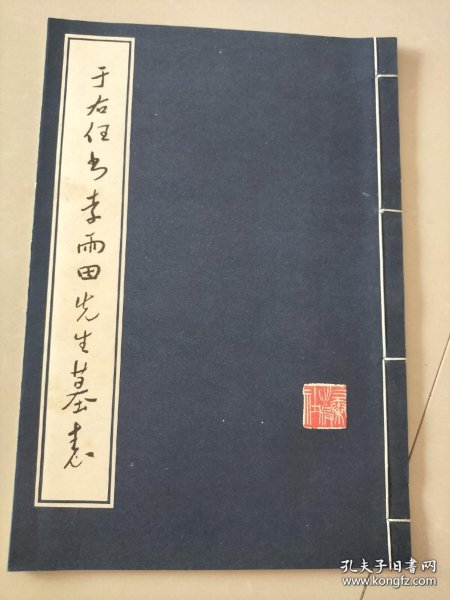 于右任书李雨田先生墓表
孔夫子旧书网
www.kongfz.com